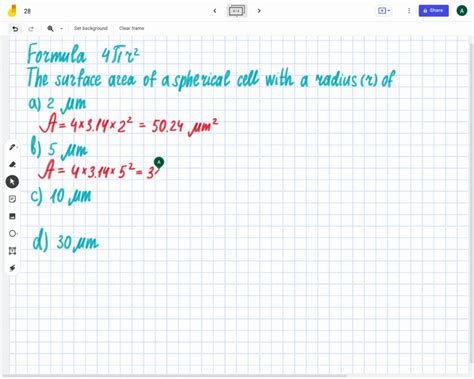 28
Share
A
Set background
Clear frame
Formula 4πr²
The surface area of a spherical cell with a radius (r) of
a) 2 µm
A = 4×3.14×2² = 50.24 µm²
b) 5 µm
A = 4×3.14×5² = 3
A
c) 10 µm
d) 30 µm